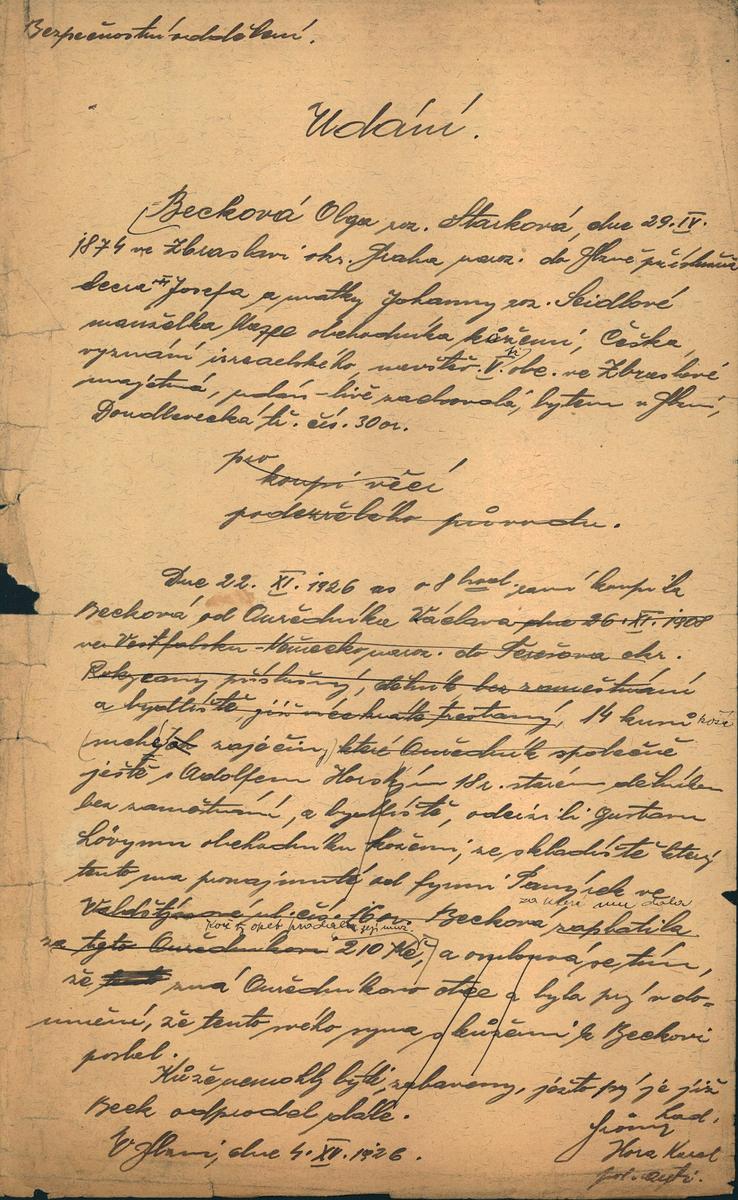 Bezpečnostní oddělení.
Udání.
Becková Olga roz. Starková, dne 29. IV.
1874 ve Zbraslavi okr. Praha naroz. do Plzně příslušná
dcera Josefa a matky Johanny roz. Seidlové
manželka obchodníka kůžemi, Češka,
vyznání israelského, navštěv. V. tř. obc. ve Zbraslavě
majetná, udán-livě zachovalá, bytem v Plzni,
Doudlevecká tř. čís. 30 or.
pro
koupi věcí
podezřelého původu.
Dne 22. XI. 1926 as o 8 hod. ranní koupila
Becková od Ouředníka Václava dne 26. XI. 1908
ve Vestfalsku-Německo naroz. do Terešova okr.
Rokycany příslušný, dělník bez zaměstnání
a bydliště, již trestaný, 14 kusů koží
zaječin, které Ouředník společně
ještě s Adolfem Horským 18 r. starém dělníkem
bez zaměstnání, a bydliště, odcizili Gustavu
Löwymu obchodníku kožemi, ze skladiště který
tento má pronajmuté od firmy Tanýrek ve
Valdštýnově ul. čís. 16 or. Becková zaplatila
za které mu dala
za tyto Ouředníkovi 210 Kč, a omlouvá se tím,
že zná Ouředníkovo otce a byla prý v do-
mnění, že tento svého syna s kůžemi k Beckovi
poslal.
Kůže nemohly býti zabaveny, ježto prý je již
Beck odprodal dále.
V Plzni, dne 4. XII. 1926.
Hora Karel